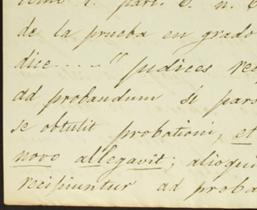 part. 3. n.
de la prueba en grado
dice....." judices
ad probandum si pars
se obtulit probationi, et
novo allegavit; alioqui
recipiuntur ad proba